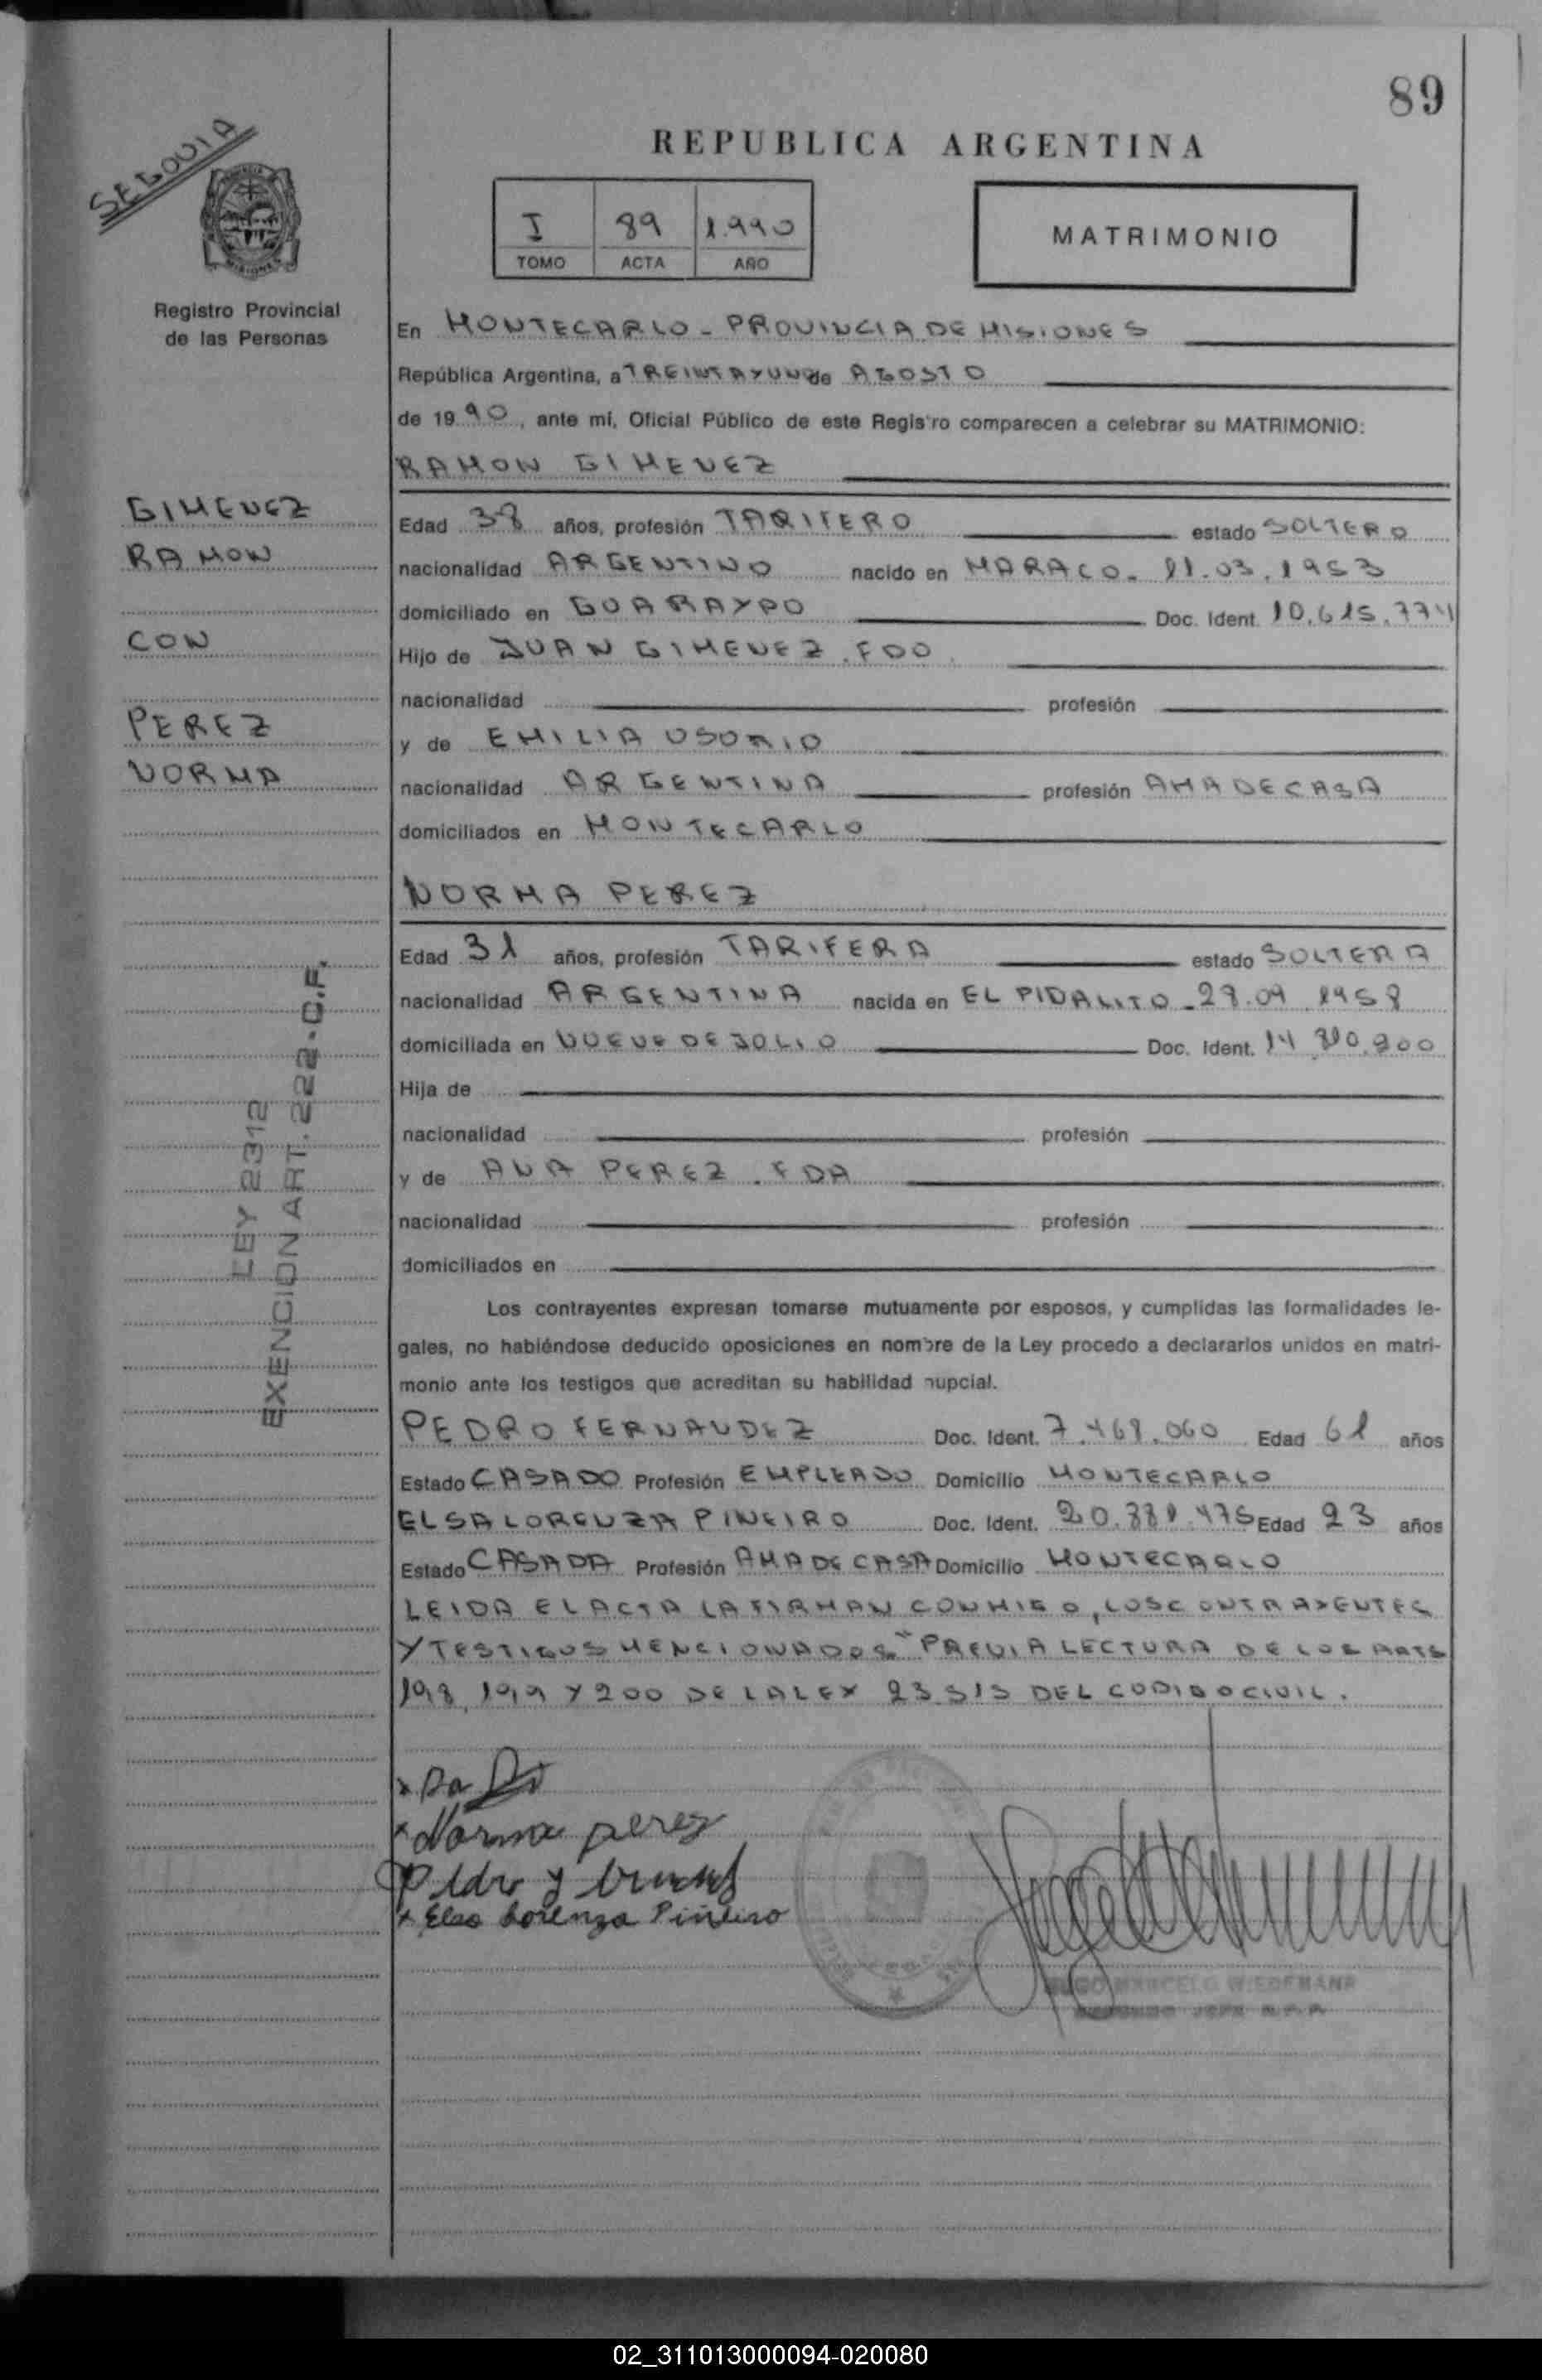 89
REPUBLICA ARGENTINA
SEGOVIA
I 89 1.990
TOMO ACTA AÑO
MATRIMONIO
Registro Provincial
de las Personas
En MONTECARLO - PROVINCIA DE MISIONES
República Argentina, a TREINTAYUNO de AGOSTO
de 1990, ante mí, Oficial Público de este Registro comparecen a celebrar su MATRIMONIO:
RAMON GIMENEZ
GIMENEZ
RAMON
CON
PEREZ
NORMA
Edad 38 años, profesión TARIFERO estado SOLTERO
nacionalidad ARGENTINO nacido en MARACO - 11.03.1953
domiciliado en GUARAYPO Doc. Ident. 10.615.774
Hijo de JUAN GIMENEZ . FDO.
nacionalidad profesión
y de EMILIA OSORIO
nacionalidad ARGENTINA profesión AMA DE CASA
domiciliados en MONTECARLO
NORMA PEREZ
Edad 31 años, profesión TARIFERA estado SOLTERA
nacionalidad ARGENTINA nacida en EL PIDALITO - 29.09
domiciliada en NUEVE DE JULIO Doc. Ident. 14
Hija de
nacionalidad profesión
y de ANA PEREZ . FDA
nacionalidad profesión
domiciliados en
LEY 2312
EXENCION ART. 222 - C.F.
Los contrayentes expresan tomarse mutuamente por esposos, y cumplidas las formalidades le-
gales, no habiéndose deducido oposiciones en nombre de la Ley procedo a declararlos unidos en matri-
monio ante los testigos que acreditan su habilidad nupcial.
PEDRO FERNANDEZ Doc. Ident. 7.468.060 Edad 61 años
Estado CASADO Profesión EMPLEADO Domicilio MONTECARLO
ELSA LORENZA PINEIRO Doc. Ident. Edad 23 años
Estado CASADA Profesión AMA DE CASA Domicilio MONTECARLO
LEIDA EL ACTA LA FIRMAN CONMIGO, LOS CONTRAYENTES
Y TESTIGOS MENCIONADOS "PREVIA LECTURA DE LOS ARTS
198, 199 Y 200 DE LA LEY 23.515 DEL CODIGO CIVIL.
Norma perez
x Elsa Lorenza Piñeiro
MARCELO WIEDEMANN
02_311013000094-020080